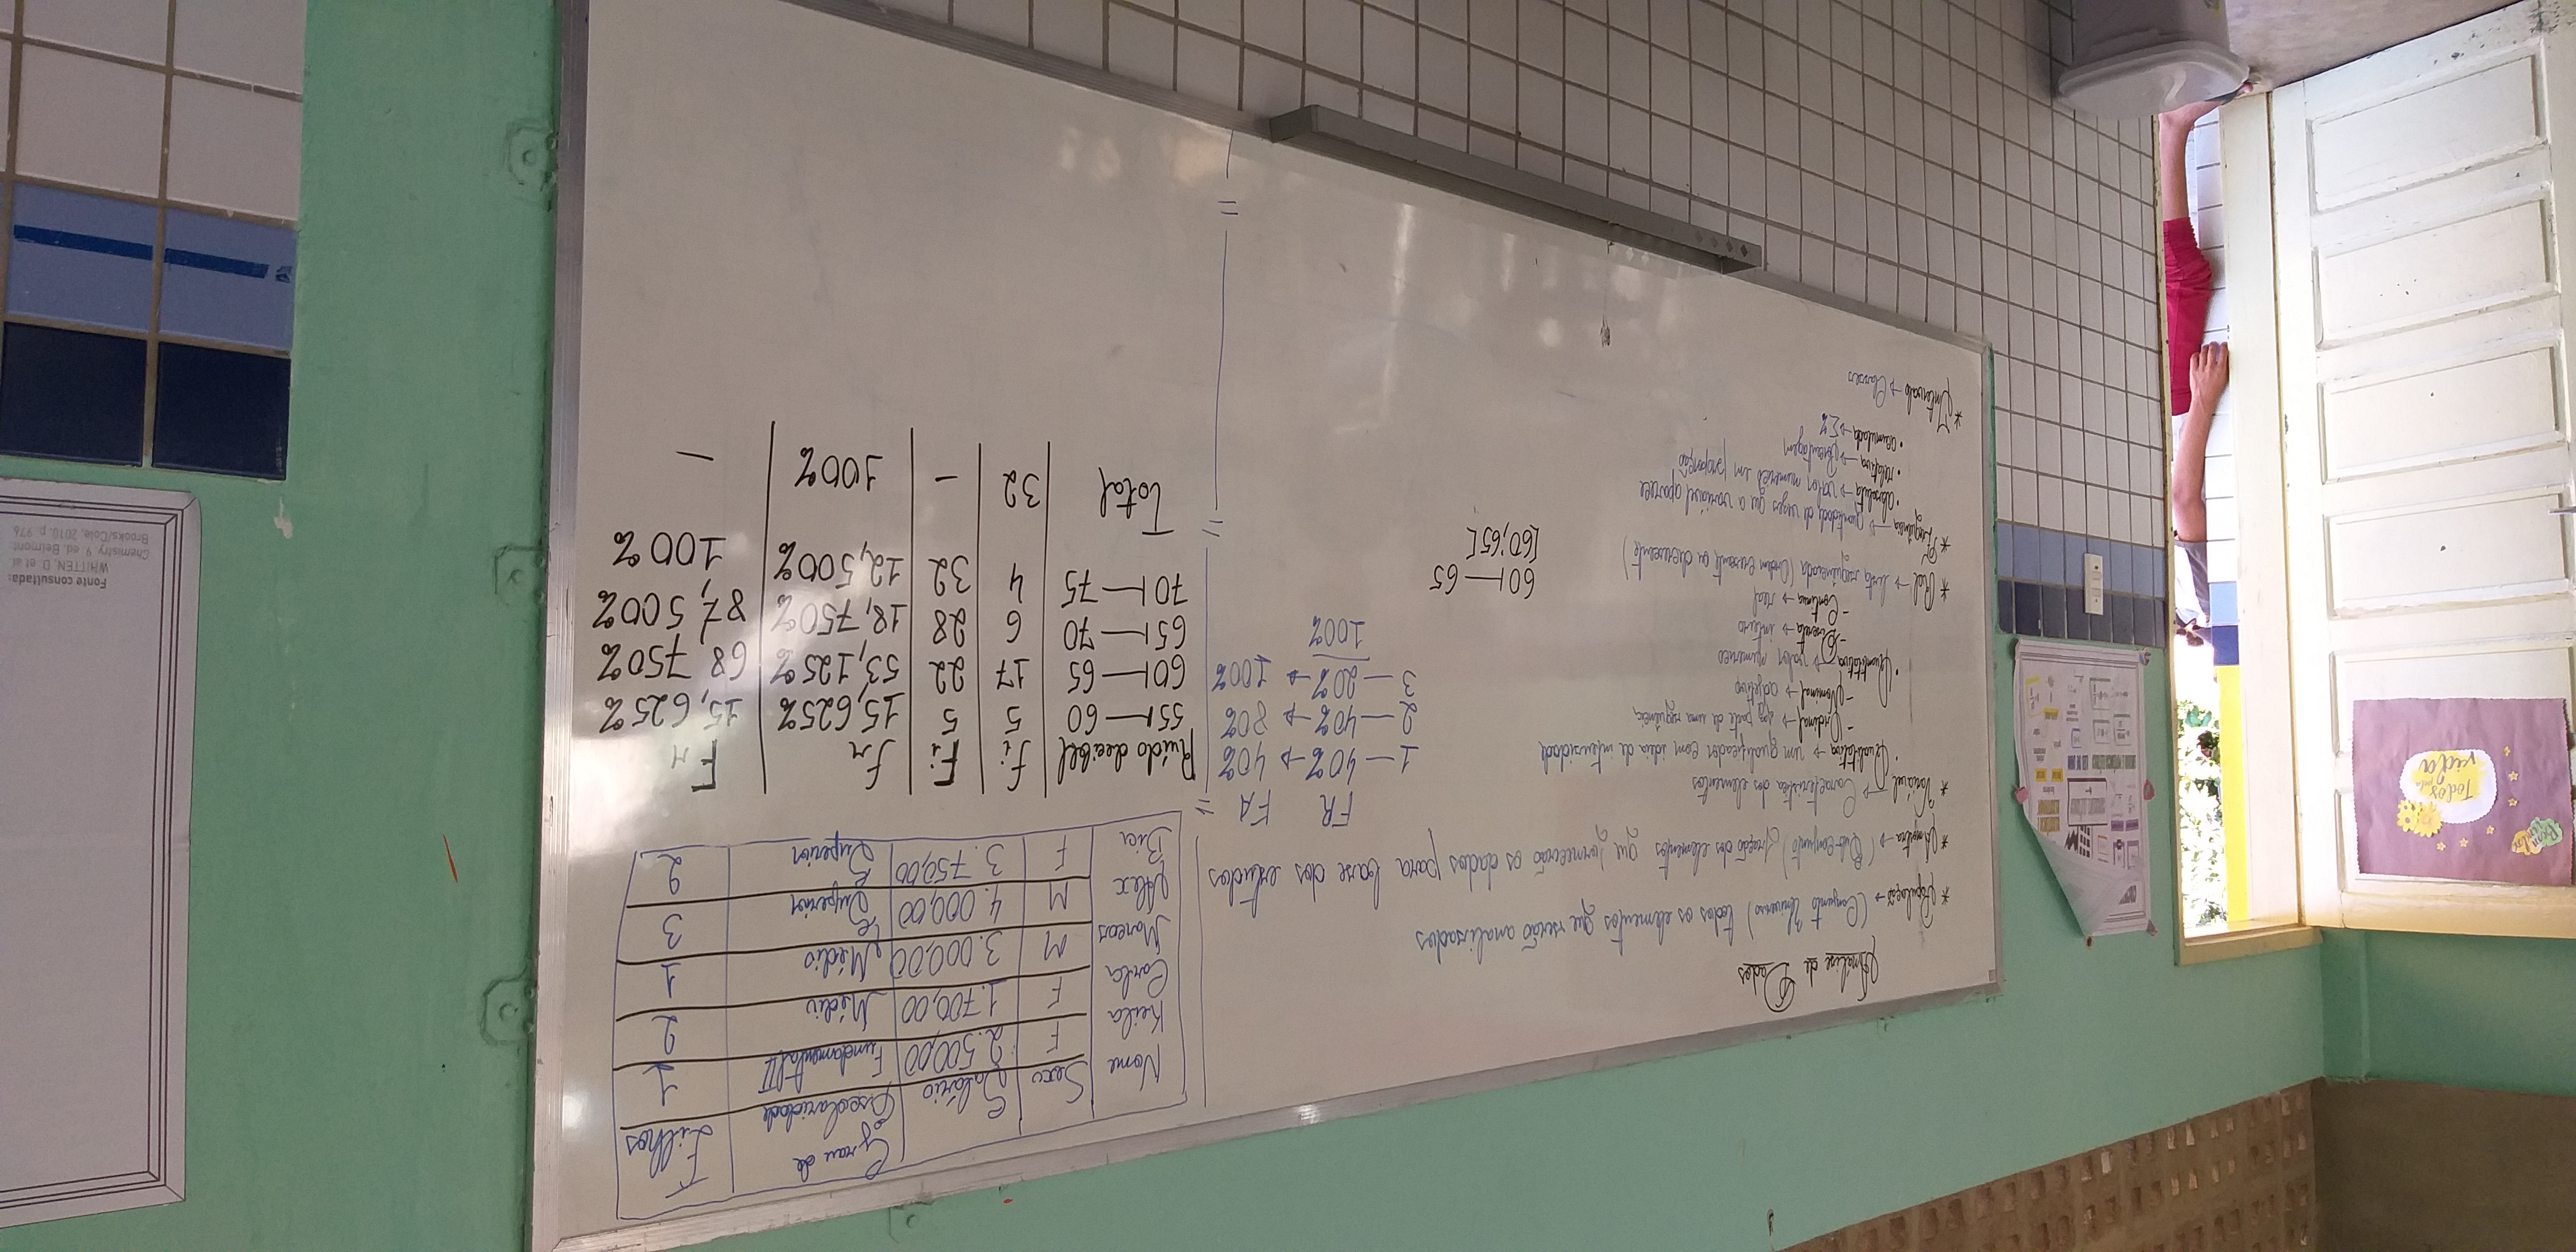 Análise de Dados
* População → (Conjunto Universo) todos os elementos que serão analisados
* Amostra → (Sub-conjunto) fração dos elementos que fornecerão os dados para base dos estudos
* Variável → Característica dos elementos
· Qualitativa → um qualificador com ideia de intensidade
- Ordinal → faz parte de uma sequência
- Nominal → adjetivo
· Quantitativa → valor numerico
- Discreta → inteiro
- Continua → real
* Rol → lista sequênciada (Ordem crescente ou decrescente)
* Frequência → quantidade de vezes que a variável aparece
· absoluta → valor numerico em proporção
· relativa → Porcentagem
· acumulada → Σ%
* Intervalo → Classes
60 ⊢ 65
[60;65[
FR FA
1 — 40% → 40%
2 — 40% → 80%
3 — 20% → 100%
100%
Nome Sexo Salário Grau de Escolaridade Filhos
Keila F 2.500,00 Fundamental II 1
Carla F 1.700,00 Médio 2
Marcos M 3.000,00 Médio 1
Alex M 4.000,00 Superior 3
Bia F 3.750,00 Superior 2
Ruído decibell fi Fi fr Fr
55 ⊢ 60 5 5 15,625% 15,625%
60 ⊢ 65 17 22 53,125% 68,750%
65 ⊢ 70 6 28 18,750% 87,500%
70 ⊢ 75 4 32 12,500% 100%
Total 32 – 100% –
Todos pela vida
Fonte consultada:
WHITTEN, D. et al.
Chemistry. 9. ed. Belmont:
Brooks/Cole, 2010. p. 976